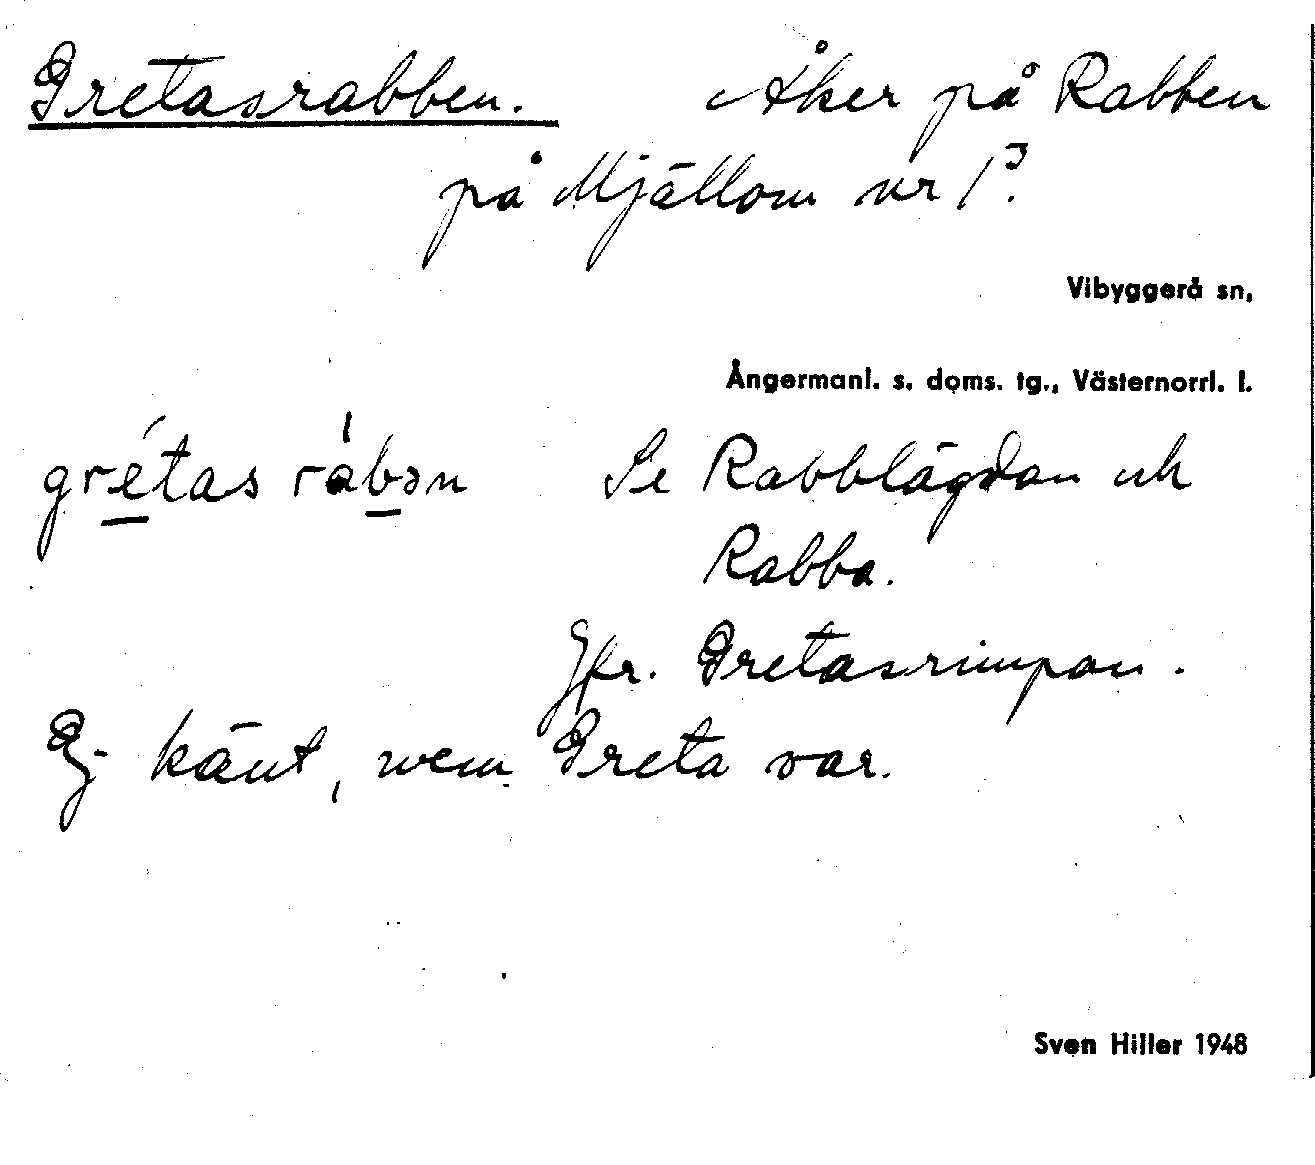 Gretasrabben. Åker på Rabben
på Mjällom nr 1³.
Vibyggerå sn,
Ångermanl. s. doms. tg., Västernorrl. l.
grétas rábən Se Rabblägdan och
Rabba.
Jfr. Gretasrimpan.
Ej känt, vem Greta var.
Sven Hiller 1948